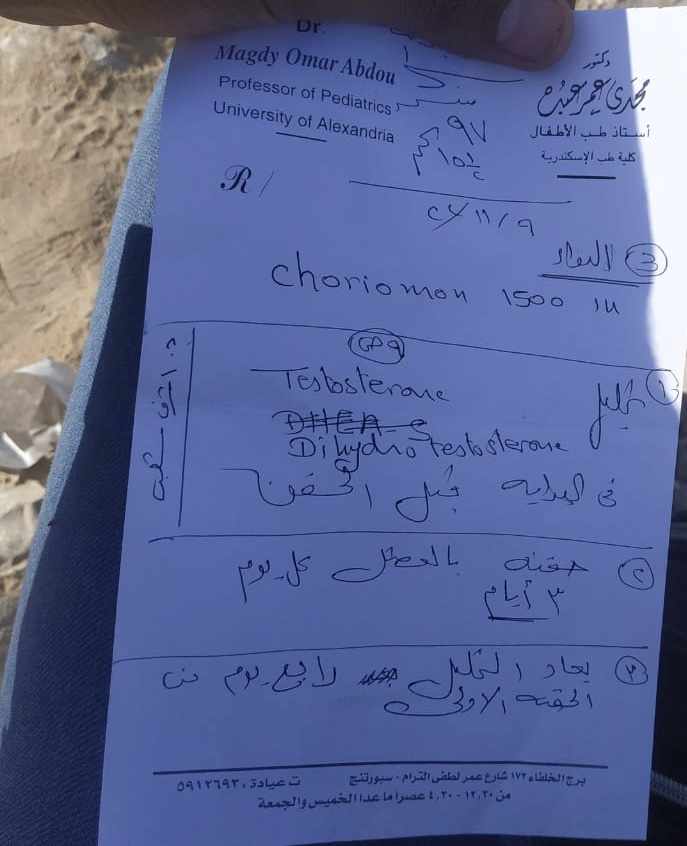 Dr.
Magdy Omar Abdou
Professor of Pediatrics
University of Alexandria
دكتور
مجدى عمر عبده
أستاذ طب الأطفال
كلية طب الإسكندرية
سم ٩٧
كجم ١٥½
R/
٩/١١/
③ الدواء
Choriomon 1500 IU
① تحليل
Testosterone
Dihydrotestosterone
فى البداية قبل الحقن
② حقنه بالعضل كل يوم
٣ أيام
③ يعاد التحليل رابع يوم من
الحقنه الاولى
برج الخلفاء ١٧٢ شارع عمر لطفى الترام - سبورتنج ت عيادة : ٥٩١٢٦٩٣
من ١٢,٣٠ - ٤,٣٠ عصرا ما عدا الخميس والجمعة